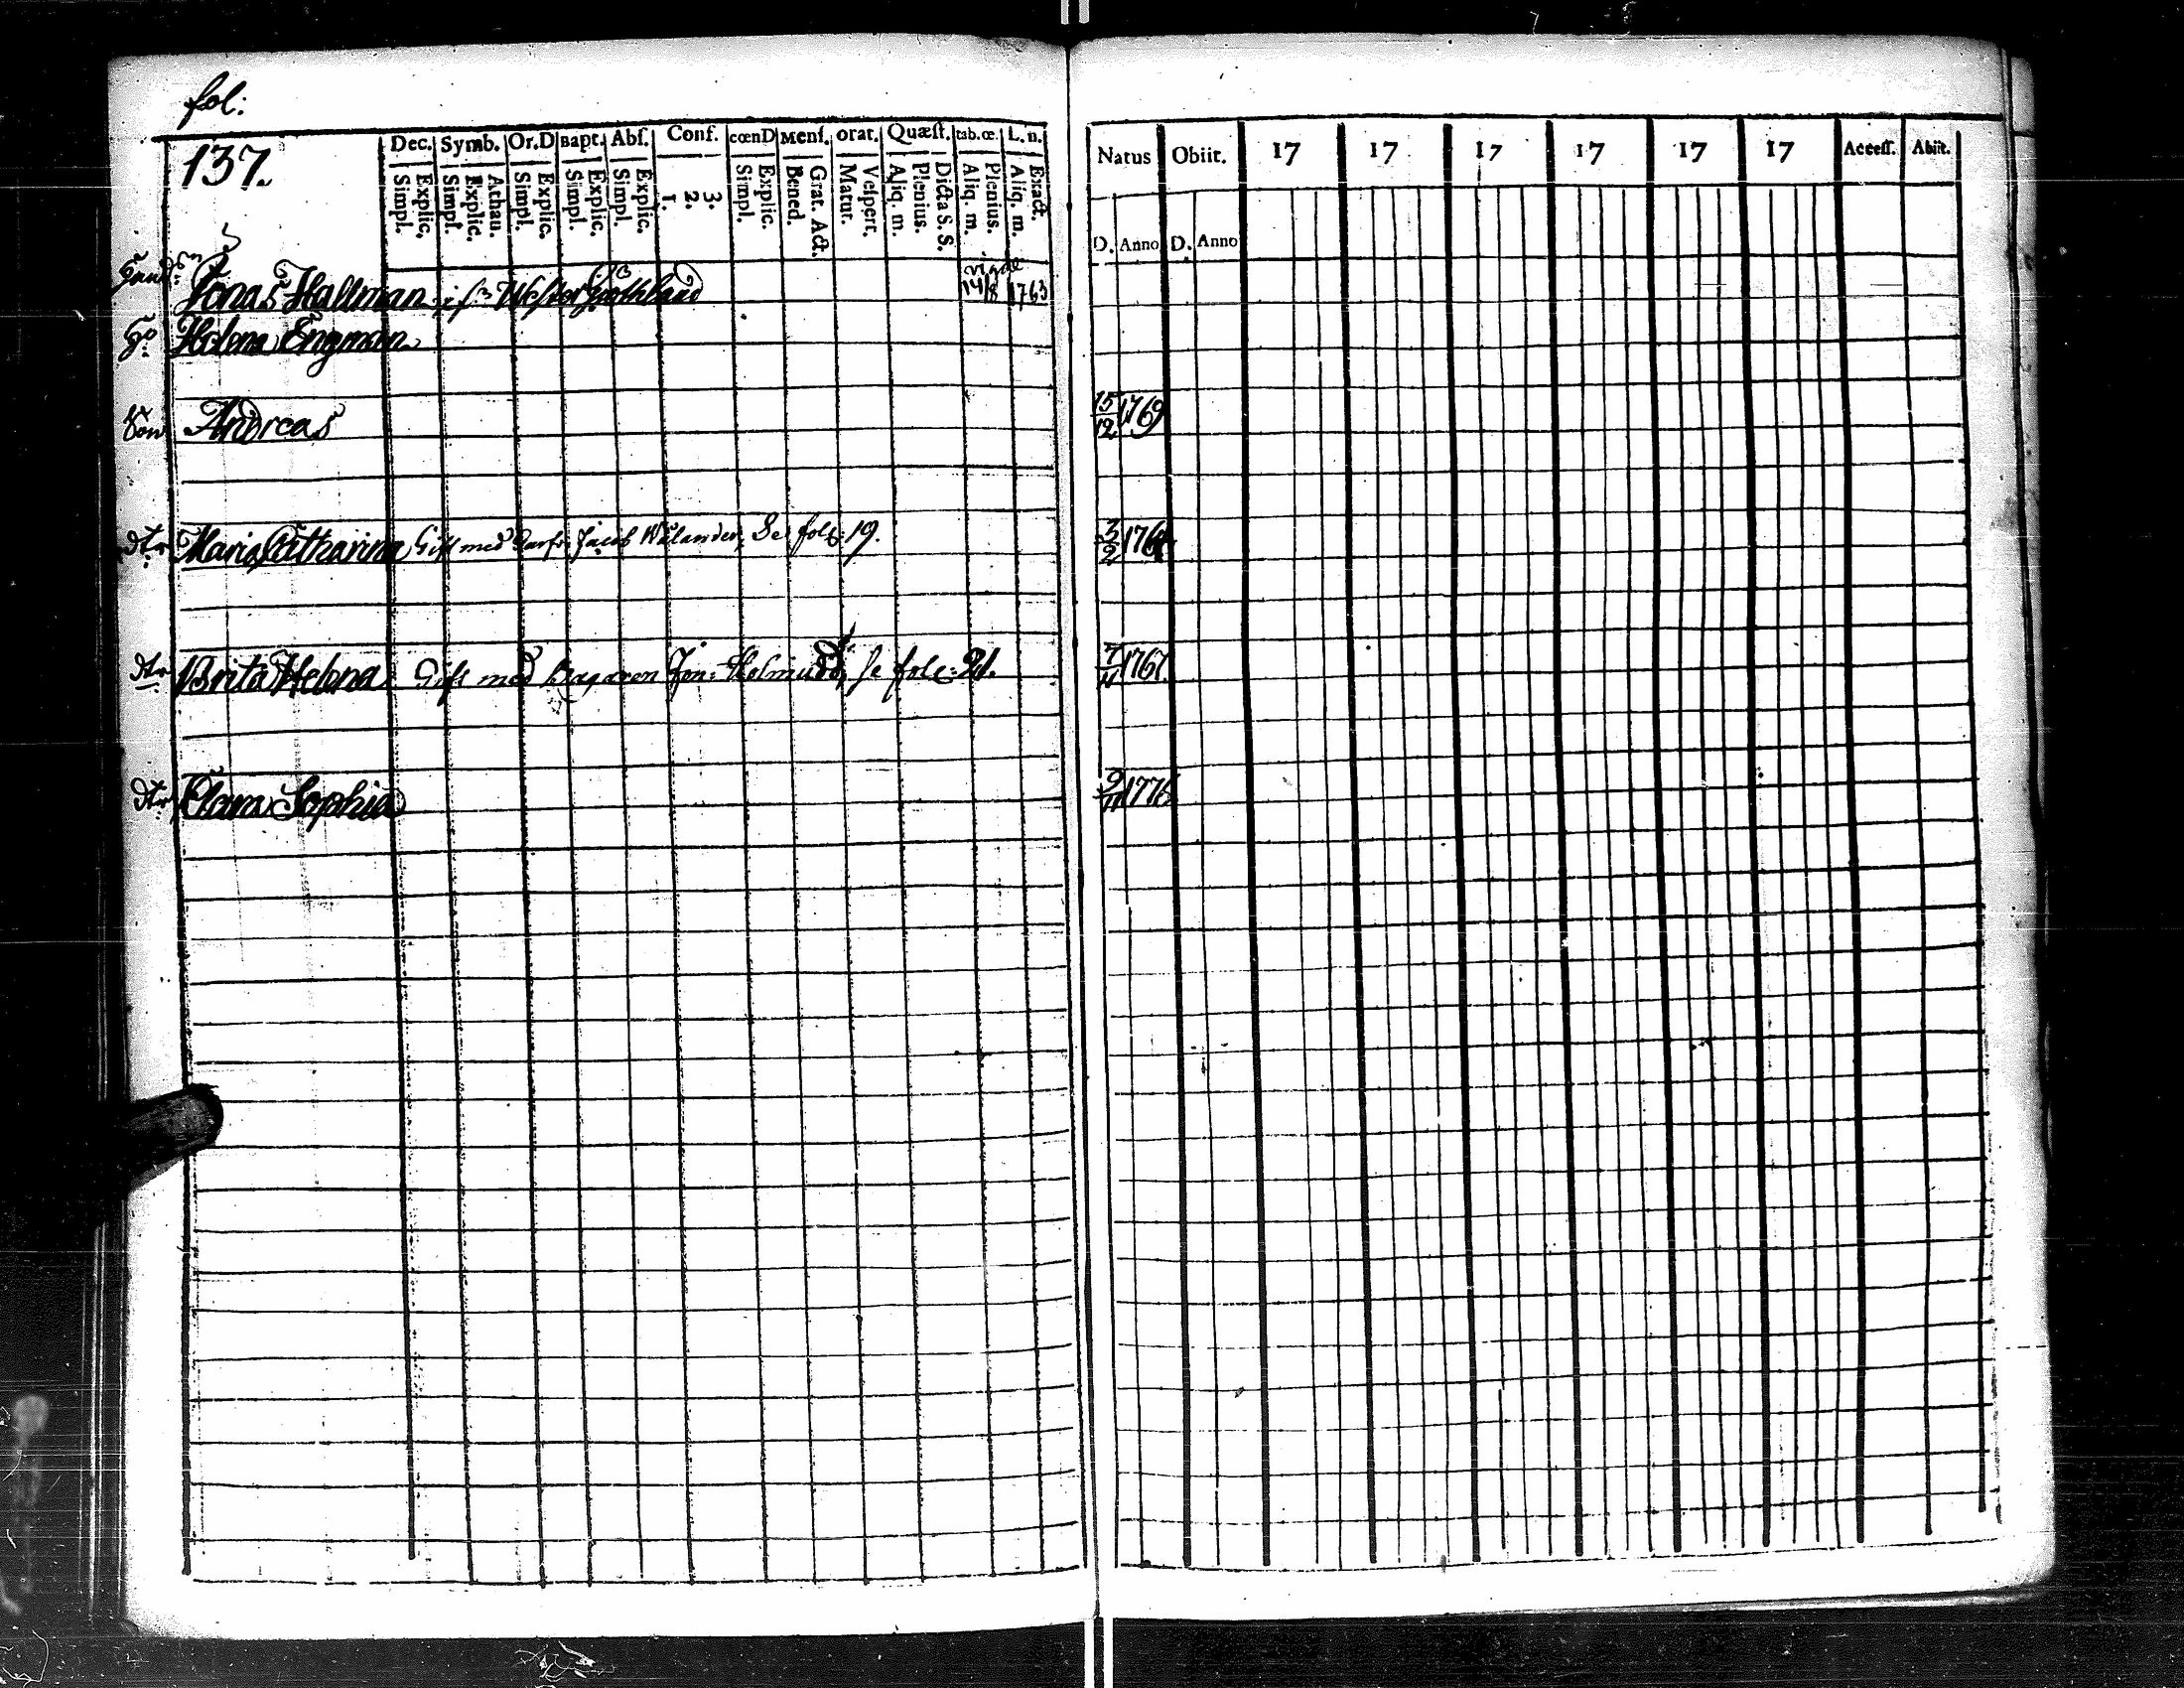 fol:
137.
Dec. Symb. Or.D Bapt. Abſ. Conf. cœnD Menſ. orat. Quæſt. tab.œ. L.n.
Simpl. Explic. Simpl. Explic. Athan. Simpl. Explic. Simpl. Explic. Simpl. Explic. 1. 2. 3. Simpl. Explic. Bened. Grat. Act. Matur. Veſpert. Aliq. m. Plenius. Dicta S. S. Aliq. m. Plenius. Aliq. m. Exact.
Natus Obiit. 17 17 17 17 17 17 Acceſſ. Abiit.
D. Anno D. Anno
vigde
Jonas Hallman Weſter Giöthland 14/8 1763
Ho. Helena Engman
Son Andreas 15/12 1769
dtr. Maria Catharina Gift med Jacob Wålander, Se fol: 19. 3/2 1764
dtr Brita Helena Gift med Jon: Holmudd, ſe fol: 21. 7/11 1767.
dtr. Clara Sophia 9/11 1776